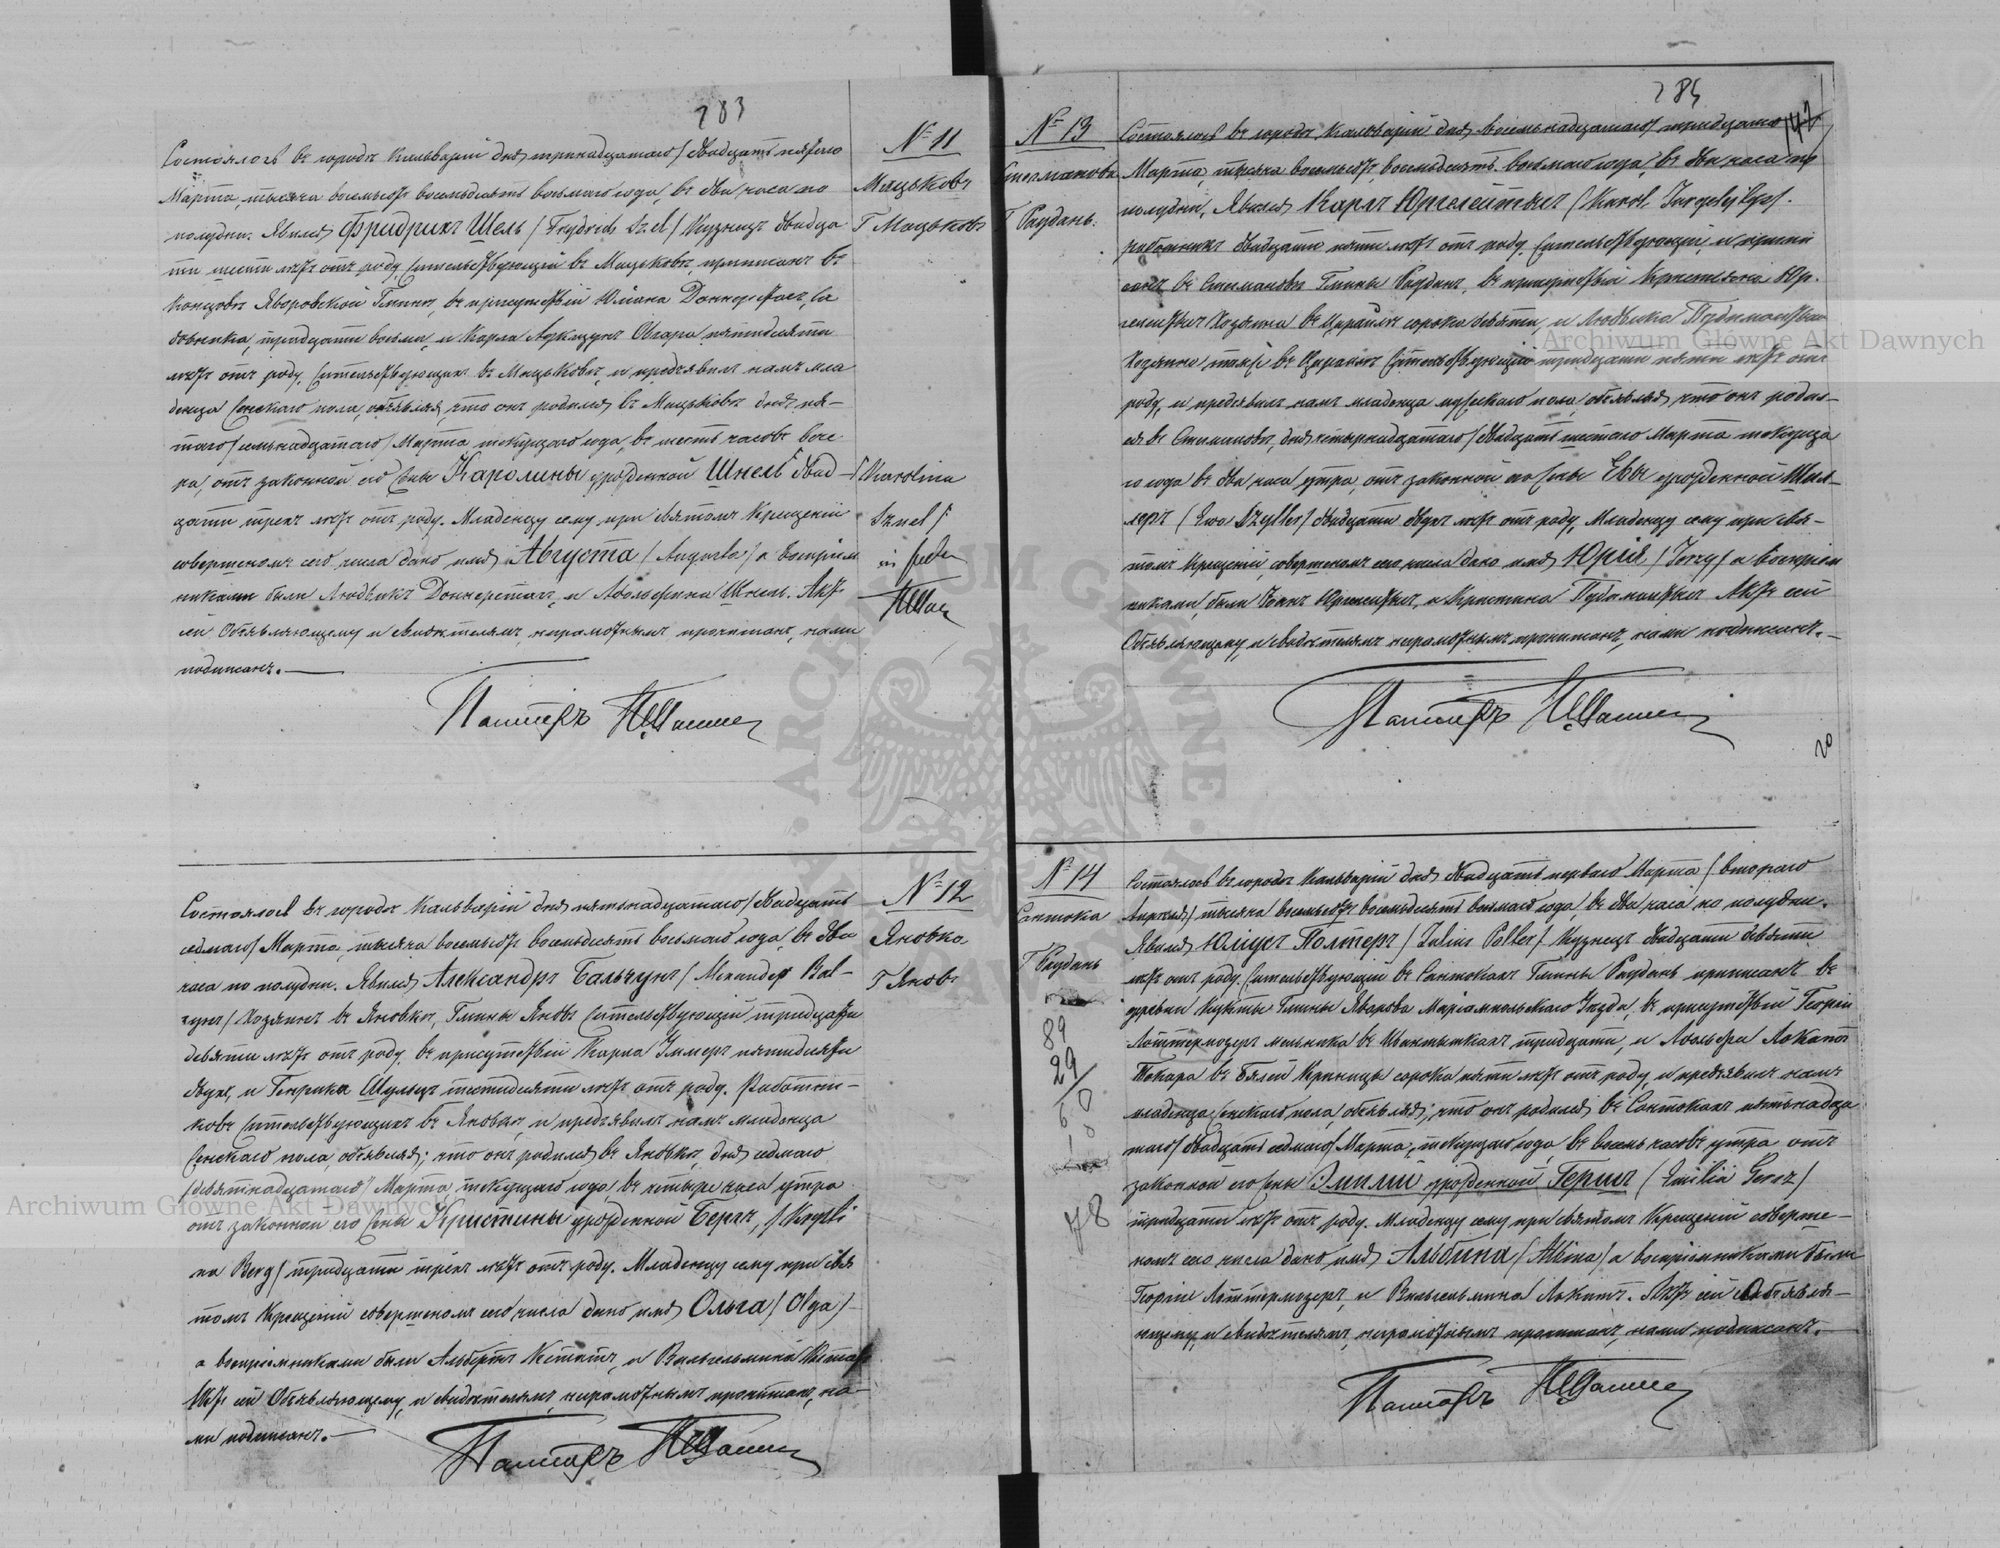 283
№ 11
Мацьковъ
Г Мацьковъ
Состоялось въ городѣ Кальваріи дня тринадцатаго / двадцать пятаго
Марта, тысяча восемьсотъ восемьдесятъ восьмаго года, въ два часа по
полудни. Явился Фридрихъ Шель / Frydrich Szel / Кузнецъ двадца
ти шести лѣтъ отъ роду, жительствующій въ Мацьковѣ, приписанъ въ
Яворовской Гмины, въ присутствіи Юліана
тридцати восьми, и Карла пятидесяти
лѣтъ отъ роду, жительствующихъ въ Мацьковѣ, и предъявилъ намъ мла
денца женскаго пола, объявляя, что онъ родился въ Мацьковѣ дня пя-
таго / семьнадцатаго / Марта текущаго года, въ шесть часовъ вече
ра, отъ законной его жены Каролины урожденной Шнель двад-
/ Karolina
цати трехъ лѣтъ отъ роду. Младенцу сему при святомъ Крещеніи
Sznel /
совершономъ сего числа дано имя Августа / Augusta / а воспріем
никами были Людвикъ и Адольфина Шнель. Актъ
сей Объявляющему и свидѣтелямъ неграмотнымъ прочитанъ, нами
подписанъ.
Пасторъ
№ 12
Яновка
Г Яновъ
Состоялось въ городѣ Кальваріи дня пятьнадцатаго / двадцать
седмаго / Марта, тысяча восемьсотъ восемьдесятъ восьмаго года, въ два
часа по полудни. Явился Александръ Бальчунъ / Alexander Bal-
czun / Хозяинъ въ Яновкѣ, Гмины Яновъ жительствующій тридцати
девяти лѣтъ отъ роду, въ присутствіи Карла Эммеръ пятидесяти
двухъ, и Генрика Шульцъ шестидесяти лѣтъ отъ роду. Работни-
ковъ жительствующихъ въ Яновкѣ, и предъявилъ намъ младенца
женскаго пола, объявляя; что онъ родился въ Яновкѣ, дня седмаго
/ девятнадцатаго / Марта текущаго года, въ четыре часа утра
отъ законной его жены Кристины урожденной Бергъ, / Krysti
na Berg / тридцати трехъ лѣтъ отъ роду. Младенцу сему при свя
томъ Крещеніи совершономъ сего числа дано имя Ольга / Olga /
а воспріемниками были Альбертъ и Вильгельмина
Актъ сей Объявляющему, и свидѣтелямъ, неграмотнымъ прочитанъ, на-
ми подписанъ.
Пасторъ
285
142
№ 13
Г Раудань.
Состоялось въ городѣ Кальваріи дня восемьнадцатаго / тридцатаго
Марта, тысяча восемьсотъ, восемьдесятъ восьмаго года, въ два часа по
полудни, Явился Карлъ Юргелейтысъ / Karol Jurgelejtys /.
работникъ двадцати пяти лѣтъ отъ роду, жительствующій, и припи
санъ въ Гмины Раудань, въ присутствіи Христіана Юр.
Хозяина въ сорока девяти, и Людвика
Хозяина также въ жительствующаго тридцати пяти лѣтъ отъ
роду, и предявилъ намъ младенца мужескаго пола, объявляя, что онъ родил-
ся въ дня четырнадцатаго / двадцать шестаго Марта текуща
го года въ два часа утра, отъ законной его жены Евы урожденной Шил-
леръ / Ewa Szyller / двадцати двухъ лѣтъ отъ роду, Младенцу сему при свя-
томъ Крещеніи, совершономъ сего числа дано имя Юрія / Jerzy / а воспріем
никами были и Кристина Актъ сей
Объявляющему, и свидѣтелямъ неграмотнымъ прочитанъ, нами подписанъ.
Пасторъ
20
№ 14
Сантока
Г Раудань
89
29
60
48
Состоялось въ городѣ Кальваріи дня двадцать перваго Марта / втораго
Апрѣля / тысяча восемьсотъ восемьдесятъ восьмаго года, въ два часа по полудни.
Явился Юліусъ Полтеръ / Julius Polter / Кузнецъ двадцати девяти
лѣтъ отъ роду. жительствующій въ Сантокахъ Гмины Раудань приписанъ въ
деревни Гмины Яворова Маріампольскаго Уѣзда, въ присутствіи Георгія
мельника въ тридцати, и Адольфа
Токара въ Бялей Криницы сорока пяти лѣтъ отъ роду, и предъявилъ намъ
младенца женскаго пола, объявляя; что онъ родился въ Сантокахъ пятьнадца
таго / двадцать седмаго / Марта, текущаго года, въ восемь часовъ утра отъ
законной его жены Эмиліи урожденной Герцъ / Emilia Gercz /
тридцати лѣтъ отъ роду. Младенцу сему при святомъ Крещеніи соверше-
номъ сего числа дано имя Альбина / Albina / а воспріемниками были
Георгій и Вильгельмина Актъ сей Объявля-
ющему, и свидѣтелямъ, неграмотнымъ прочитанъ, нами подписанъ.
Пасторъ
Archiwum Główne Akt Dawnych
Archiwum Główne Akt Dawnych